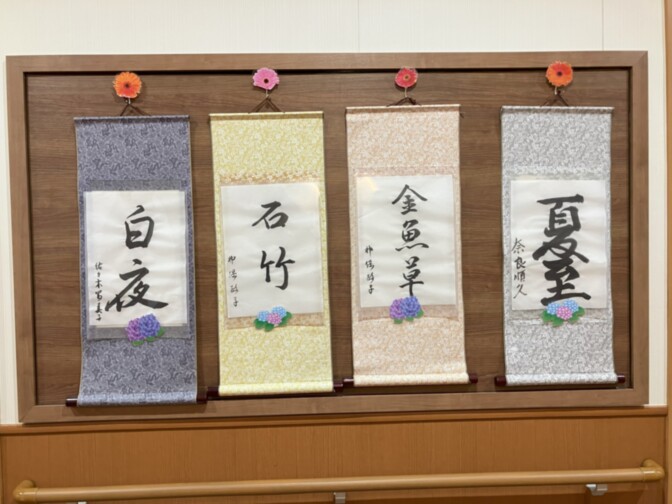 白夜
佐々木
石竹
金魚草
夏至
奈良順久